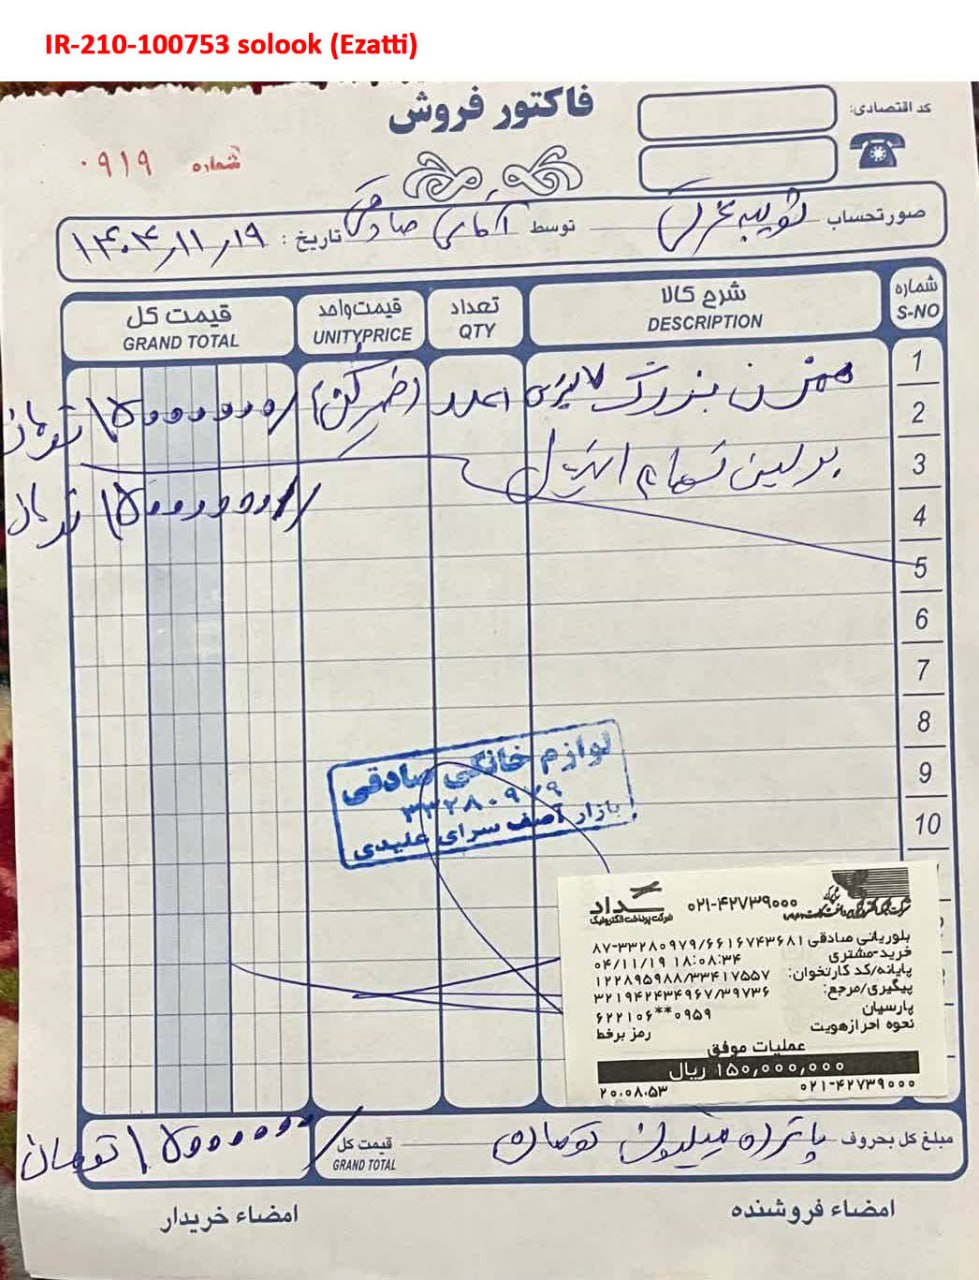 IR-210-100753 solook (Ezatti)
فاکتور فروش
کد اقتصادی:
شماره ۰۹۱۹
صورتحساب توسط آقای صادقی تاریخ: ۱۴۰۴/۱۱/۱۹
شماره S-NO
شرح کالا DESCRIPTION
تعداد QTY
قیمت واحد UNITYPRICE
قیمت کل GRAND TOTAL
1
مخزن بزرگ ۱ عدد ۱۵۰۰۰۰۰۰/ تومان
2
3
تمام استیل
4
۱۵۰۰۰۰۰۰۰/ ریال
5
6
7
8
9
10
لوازم خانگی صادقی
۳۳۲۸۰۹۷۹
بازار آصف سرای علیدی
سداد
شرکت پرداخت الکترونیک
۰۲۱-۴۲۷۳۹۰۰۰
بلوریاتی صادقی ۸۷-۳۳۲۸۰۹۷۹/۶۶۱۶۷۴۳۶۸۱
خرید-مشتری ۰۴/۱۱/۱۹ ۱۸:۰۸:۳۴
پایانه/کد کارتخوان: ۱۲۲۸۹۵۹۸۸/۳۳۴۱۷۵۵۷
پیگیری/مرجع: ۳۲۱۹۴۲۴۳۴۹۶۷/۳۹۷۳۶
پارسیان ۶۲۲۱۰۶**۰۹۵۹
نحوه احراز هویت رمز برخط
عملیات موفق
۱۵۰,۰۰۰,۰۰۰ ریال
۰۲۱-۴۲۷۳۹۰۰۰ ۲۰.۰۸.۵۳
مبلغ کل بحروف پانزده میلیون تومان
قیمت کل GRAND TOTAL ۱۵۰۰۰۰۰۰/ تومان
امضاء فروشنده
امضاء خریدار